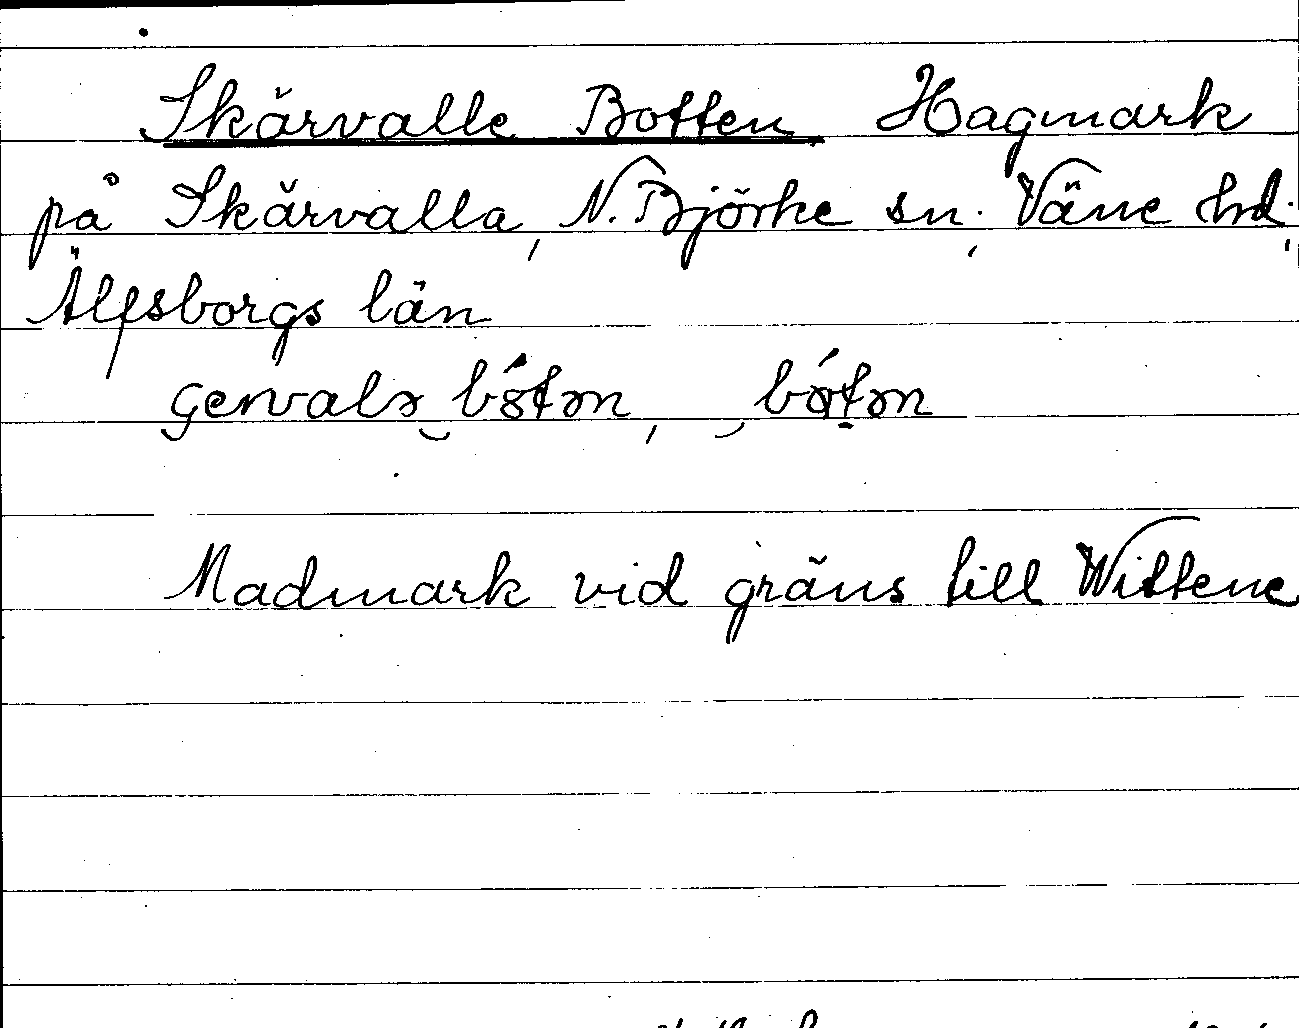 Skärvalle Botten Hagmark
på Skärvalla, N. Björke sn, Väne hd.,
Älfsborgs län
Madmark vid gräns till Wittene